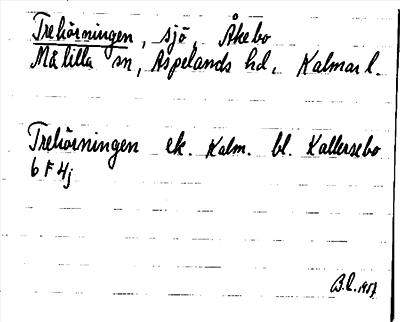 Trehörningen, sjö, Åkebo
Målilla sn, Aspelands hd, Kalmar l.
Trehörningen ek. Kalm. bl. Kallersebo
6 F 4j